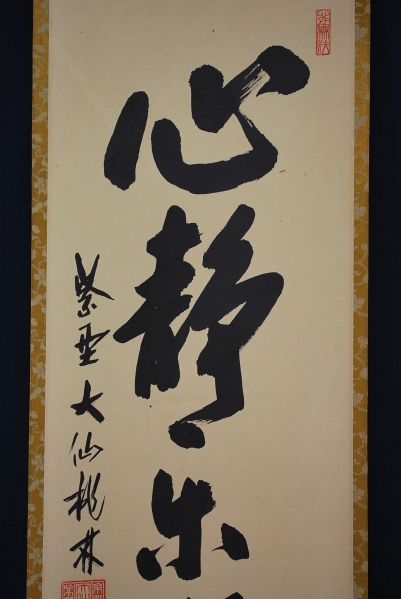 心静乐
紫野大仙桃林